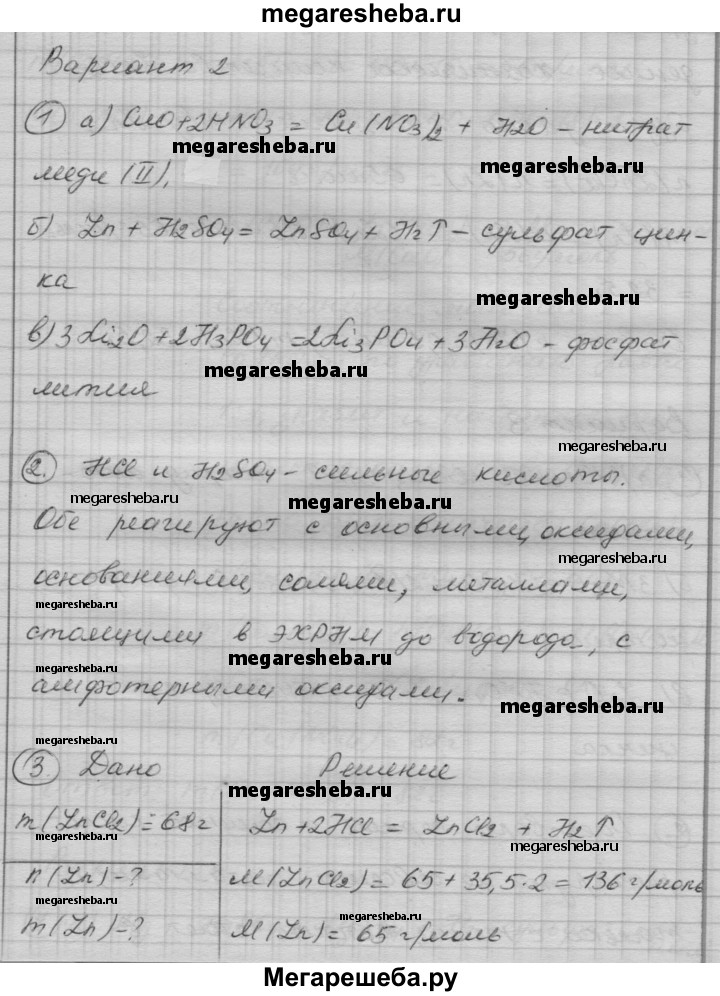 megaresheba.ru
Вариант 2
① а) CuO+2HNO3 = Cu(NO3)2 + H2O - нитрат
megaresheba.ru megaresheba.ru
меди (II),
б) Zn + H2SO4 = ZnSO4 + H2↑ - сульфат цин-
ка
megaresheba.ru
в) 3Li2O + 2H3PO4 = 2Li3PO4 + 3H2O - фосфат
megaresheba.ru
лития
megaresheba.ru
2. HCl и H2SO4 - сильные кислоты.
megaresheba.ru megaresheba.ru
Обе реагируют с основными оксидами,
megaresheba.ru
основаниями, солями, металлами,
megaresheba.ru
стоящими в ЭХРНМ до водорода, с
megaresheba.ru
megaresheba.ru
амфотерными оксидами.
megaresheba.ru
megaresheba.ru
3. Дано Решение
megaresheba.ru
m(ZnCl2) = 68 г Zn + 2HCl = ZnCl2 + H2↑
megaresheba.ru megaresheba.ru
n(Zn) - ? M(ZnCl2) = 65 + 35,5·2 = 136 г/моль
megaresheba.ru megaresheba.ru
m(Zn) - ? M(Zn) = 65 г/моль
megaresheba.ru
Мегарешеба.ру